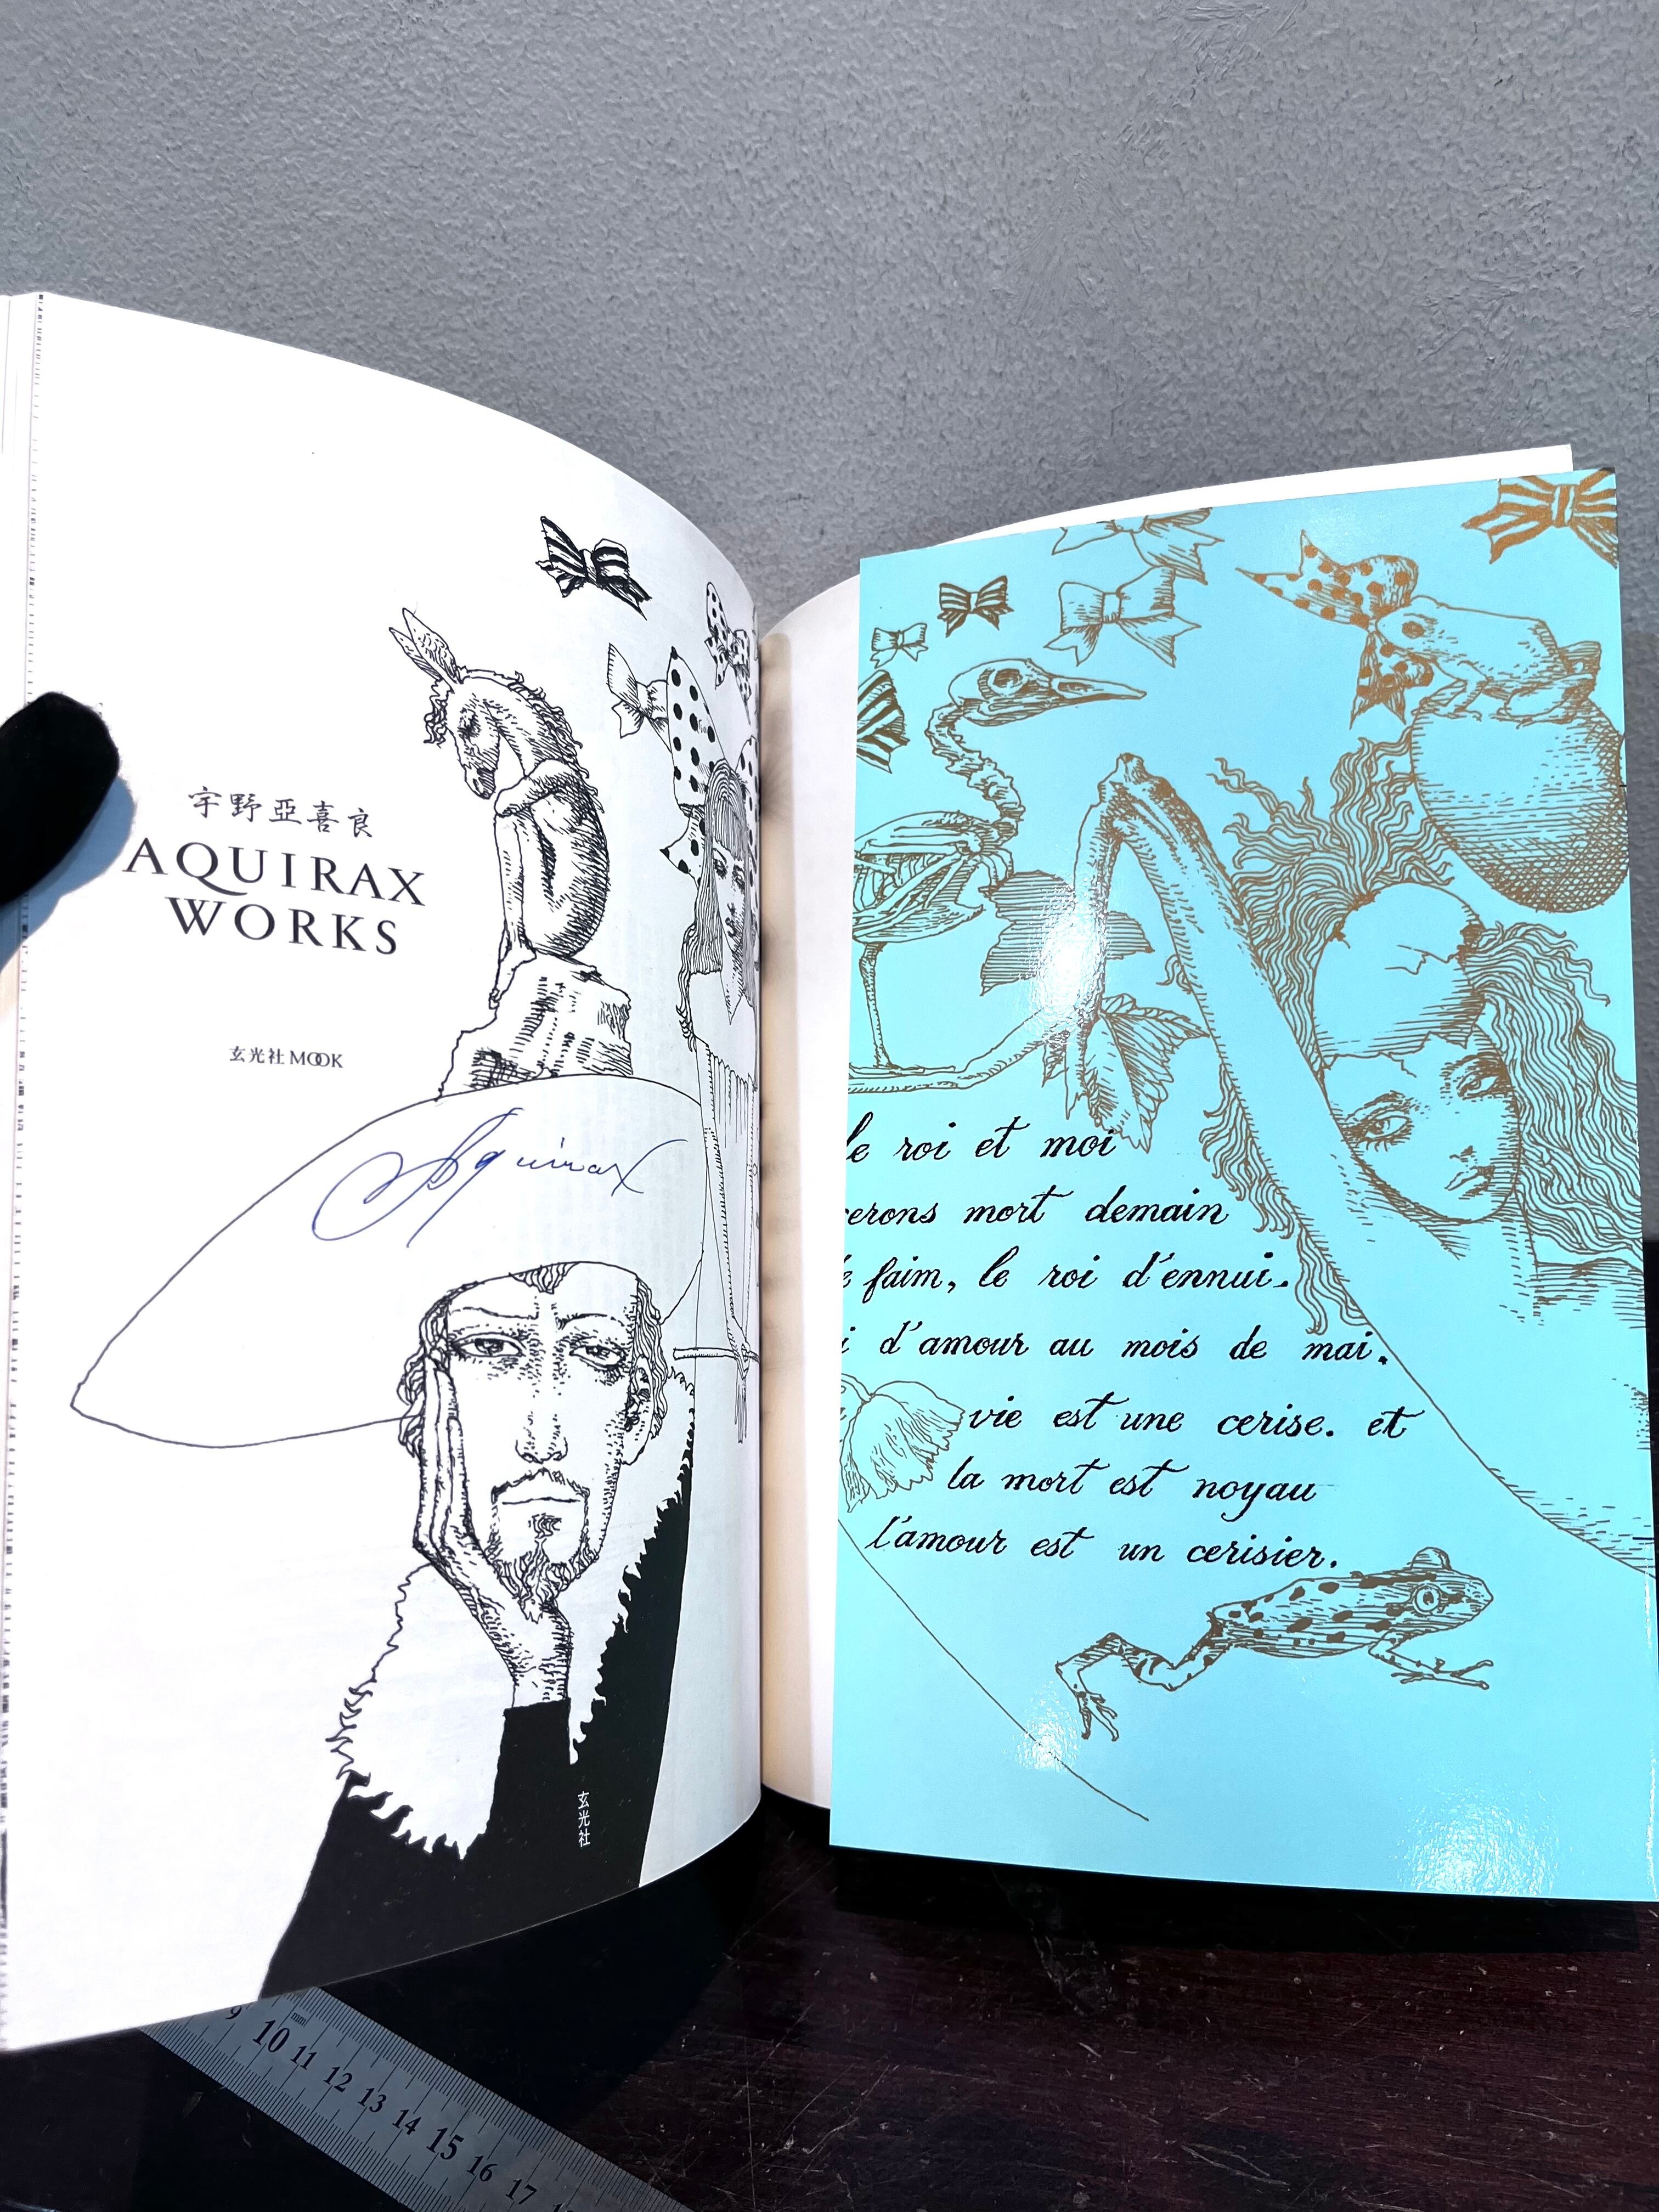 宇野亞喜良
AQUIRAX
WORKS
玄光社 MOOK
Aquirax
玄光社
le roi et moi
erons mort demain
faim, le roi d'ennui.
i d'amour au mois de mai.
vie est une cerise. et
la mort est noyau
l'amour est un cerisier.
9 10 11 12 13 14 15 16 17
mm